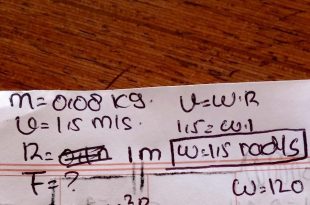 m = 0.08 kg. V=W.R
V= 1.5 m/s. 1.5 = W.1
R = 1m W=1.5 rad/s
F = ? W=120